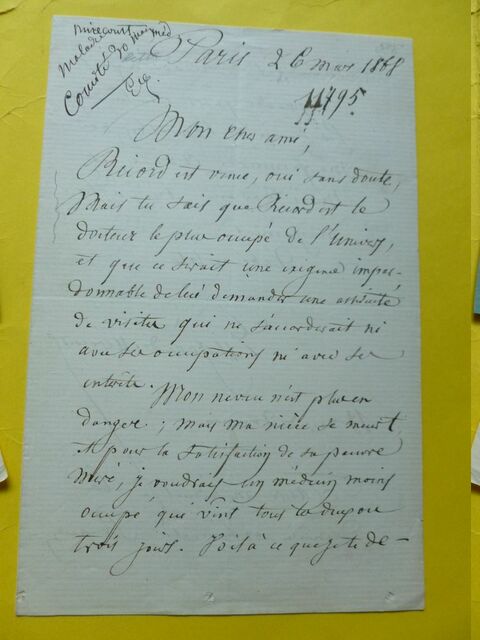 Mirecourt
Malade
Comité 30
Paris 26 mars 1868
11795
Mon cher ami,
Ricord est venu, oui sans doute,
Mais tu sais que Ricord est le
docteur le plus occupé de l'Univers,
et que ce serait une exigence impar-
donnable de lui demander une assiduité
de visites qui ne s'accorderait ni
avec ses occupations ni avec ses
intérêts. Mon neveu n'est plus en
danger; mais ma nièce se meurt
et pour la satisfaction de sa pauvre
mère, je voudrais un médecin moins
occupé qui vint tous les deux ou
trois jours. Voilà ce que je te de-